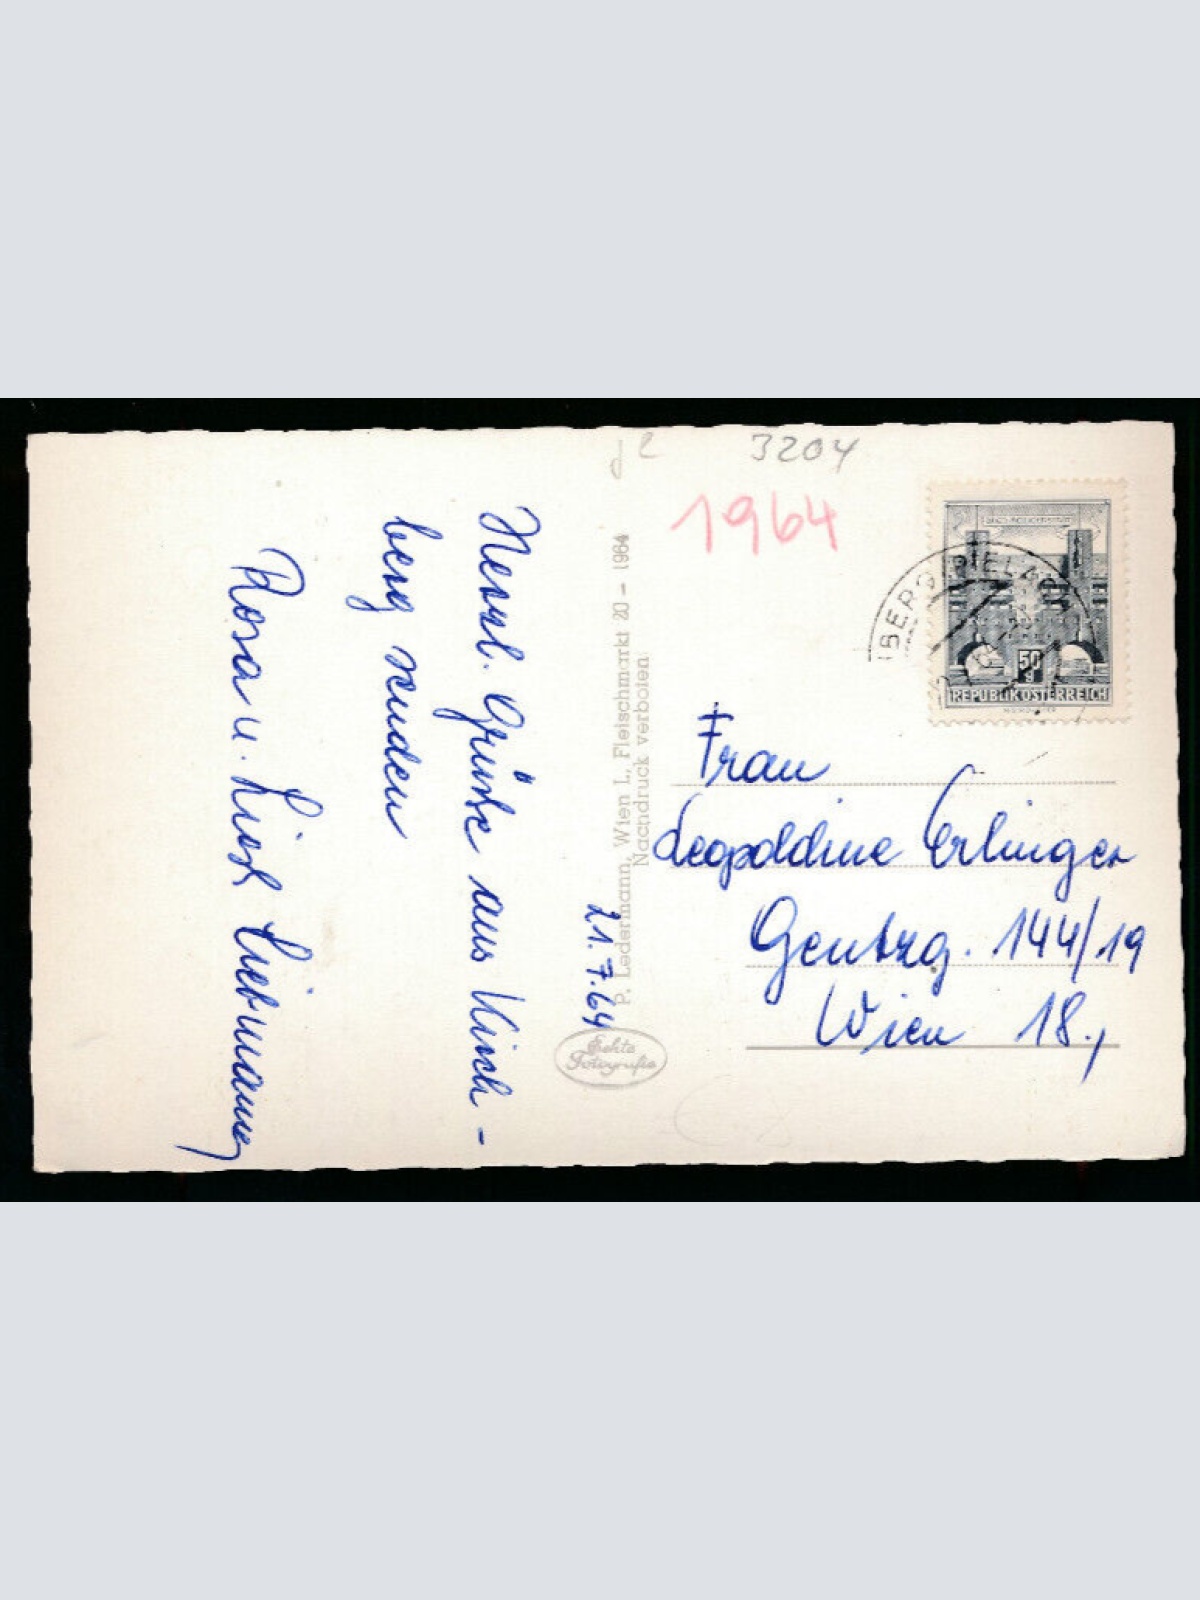 3204
1964
Herzl. Grüße aus Kirch-
berg senden
Rosa u. Liesl
21.7.64
P. Ledermann, Wien I., Fleischmarkt 20 – 1964
Nachdruck verboten
Echte
Fotografie
50
g
REPUBLIK ÖSTERREICH
Frau
Leopoldine Erlinger
Gentzg. 144/19
Wien 18.,